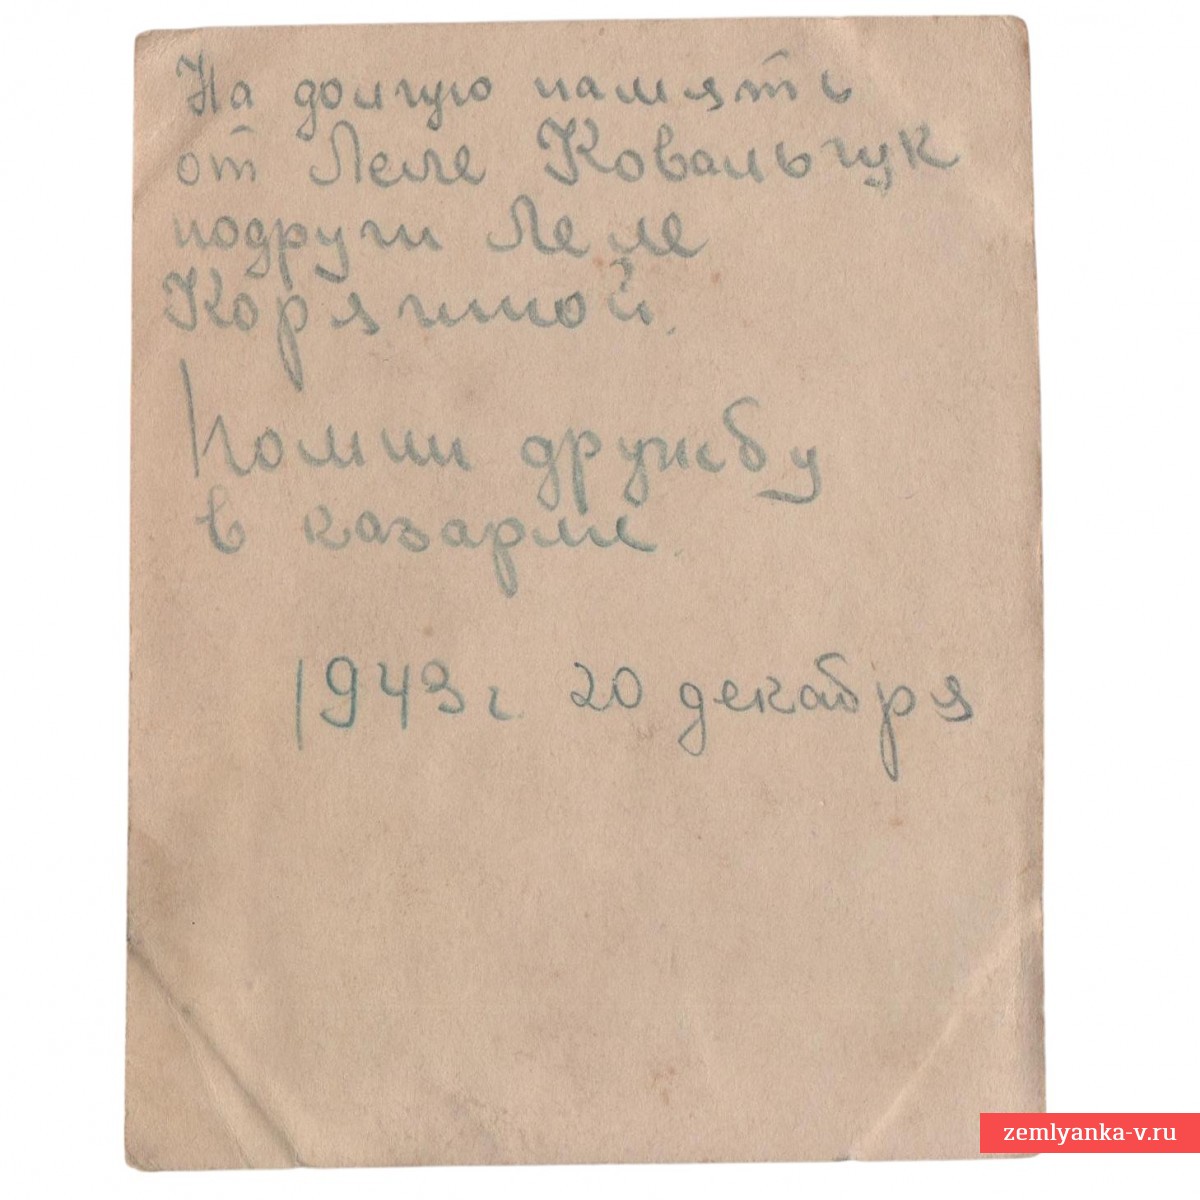 На долгую память
от Леле Ковальчук
подруги Леле
Корягиной.
Помни дружбу
в казарме.
1943 г 20 декабря
zemlyanka-v.ru